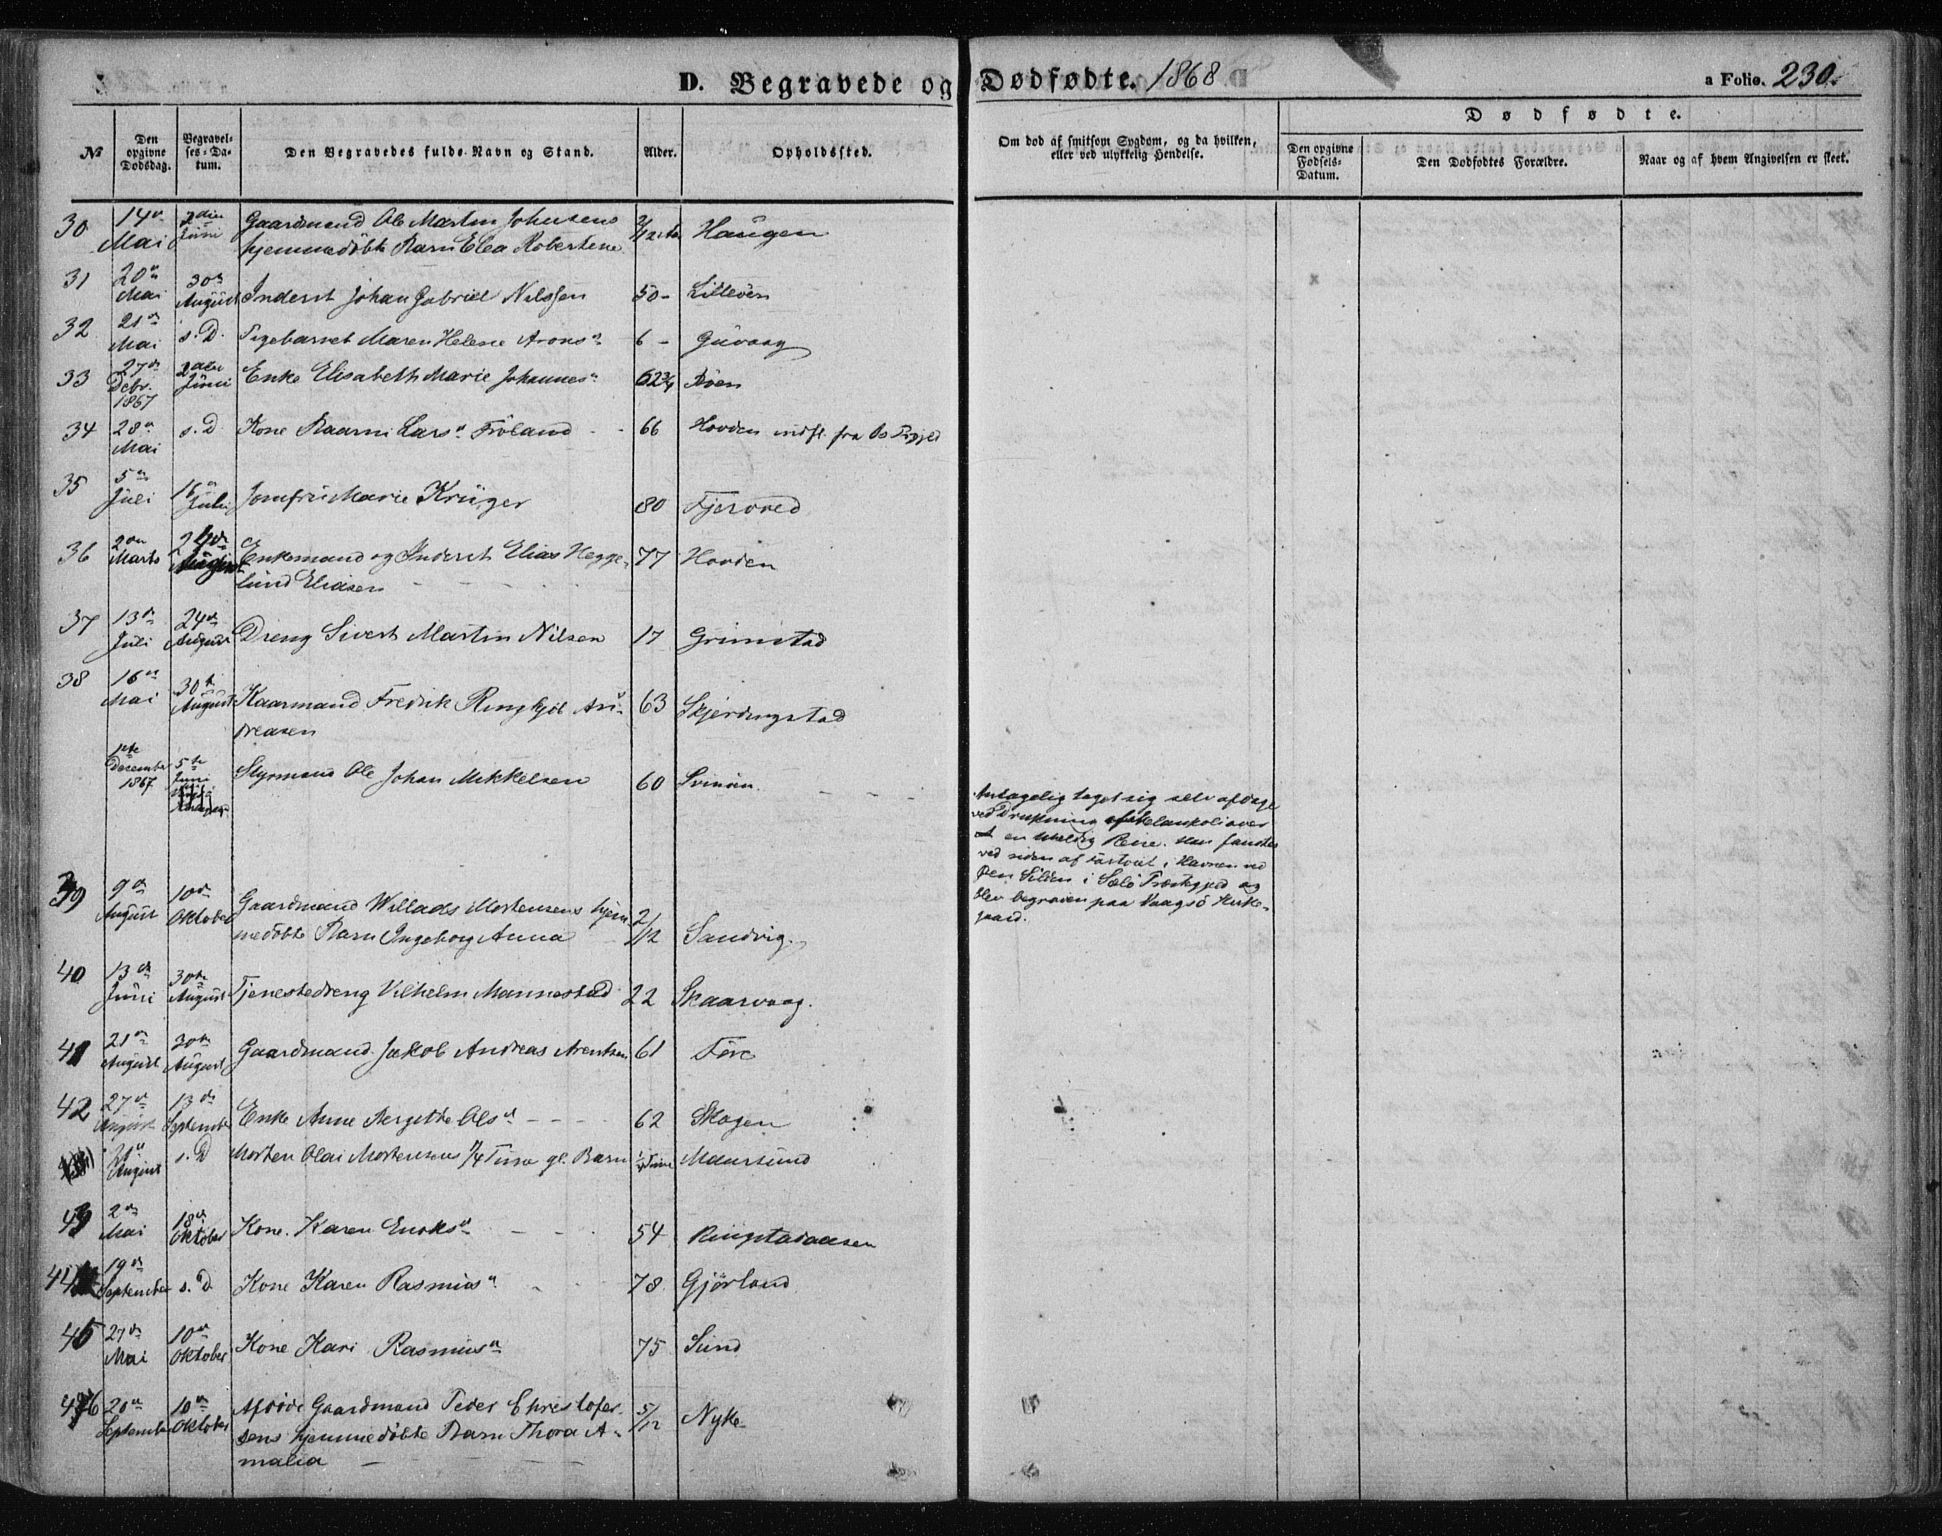 D. Begravede og Dødfødte. 1868 a Folio. 230.
№ Den opgivne Dødsdag. Begravelses-Datum. Den Begravedes fulde Navn og Stand. Alder. Opholdssted. Om død af smitsom Sygdom, og da hvilken, eller ved ulykkelig Hendelse. Dødfødte.
Den opgivne Fødsels-Datum. Den Dødfødtes Forældre. Naar og af hvem Angivelsen er skeet.
30 14de Mai 2den Juni Gaardmand Ole Martin Johnsens
hjemmedøbte Barn Elea Robertine Haugen
31 20de Mai 30te August Inderst Johan Gabriel Nilssen 50 - Litleøen
32 21de Mai s. D. Pigebarnet Maren Helene Arons" 6 - Guvaag
33 27de Decbr. 1867 Juni Enke Elisabeth Marie Johannes" 62 3/4 Røen
34 28de Mai s. D. Kone Raarni Lars" Frøland 66 Hovden indfl. fra Os Prgjeld
35 5te Juli 16de Juli Jomfru Marie Krüger 80 Fjærvoed
36 2den Marts 24de Enkemand og Inderst Elias Hegge-
lund Eliasen 77 Hovden
37 13de Juli 24de August Dreng Sivert Martin Nilsen 17 Grimstad
38 16de Mai 30te August Kaarmand Fredrik Ringkjøb An-
dreasen 63 Skjerdingstad
1ste December 1867 5te Juni Styrmand Ole Johan Mikkelsen 60 Svinøen
Antagelig taget sig selv afdage
ved Drukning af Melankoli over
en uheldig Reise. Han fandtes
ved siden af Fartøiet i Havnen ved
Sælø Præstegjed og
blev begraven paa Vaagsø Kirke-
gaard.
39 9de August 10de Oktober Gaardmand Willads Mortensens hjem-
medøbte Barn Ingeborg Anna 2/12 Sandvig.
40 13de Juni 30te August Tjenestedreng Vilhelm Mannestad 22 Skaarvaag.
41 21de August 30te August Gaardmand Jakob Andreas Arentsen 61 Føre
42 27de August 13de September Enke Anne Bergitte Ols" 62 Skogen
August s. D Morten Olai Mortensens 1/4 Time gl. Barn 1/4 Time Maarsund
43 2den Mai 18de Oktober Kone Karen Enoks" 54 Ringstadaasen
44 19de September s. D Kone Karen Rasmus" 78 Gjørland
45 27de Mai 10de Oktober Kone Kari Rasmus" 75 Sund
46 20de September 10de Oktober Afdøde Gaardmand Peder Christofer-
sens hjemmedøbte Barn Thora A-
malia 5/12 Nyke